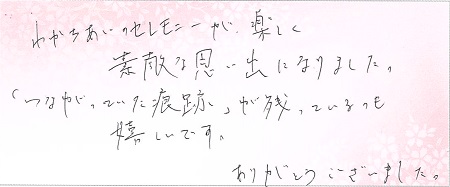 わかちあいのセレモニーが、楽しく
素敵な思い出になりました。
「つながっていた痕跡」が残っているのも
嬉しいです。
ありがとうございました。